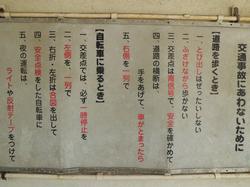 交通事故にあわないために
【道路を歩くとき】
一、とび出しはぜったいしない
二、ふざけながら歩かない
三、交差点は青信号で、安全を確かめて
四、道路の横断は、
手をあげて、車がとまったら
五、右側を一列で
【自転車に乗るとき】
一、交差点では、必ず一時停止を
二、左側を、一列で
三、右折・左折は合図を出して
四、安全点検をした自転車に
五、夜の運転は
ライトや反射テープをつけて